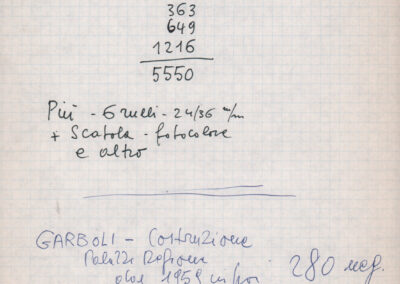 363
649
1216
5550
Più - 6 rulli - 24/36 m/m
+ Scatola - fotocolore
e altro
GARBOLI - Costruzione
Palazzi Regione
1959 in poi
280 neg.